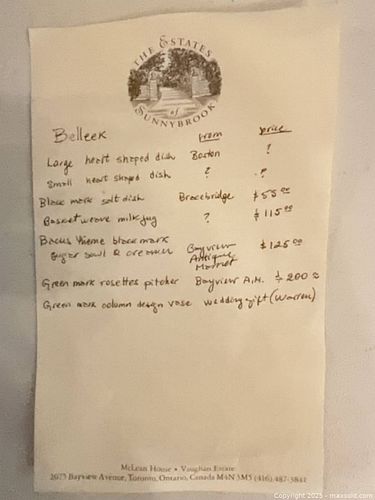 THE ESTATES
of
SUNNYBROOK
Belleek From price
Large heart shaped dish Boston ?
Small heart shaped dish ? ?
Black mark salt dish Bracebridge $55.00
Basket weave milk jug ? $115.00
Bacus theme black mark
sugar bowl & creamer Bayview $125.00
Antique
Market
Green mark rosettes pitcher Bayview A.M. $200
Green mark column design vase wedding gift (Warren)
McLean House • Vaughan Estate
2075 Bayview Avenue, Toronto, Ontario, Canada M4N 3M5 (416) 487-3841
Copyright 2025 - maxsold.com